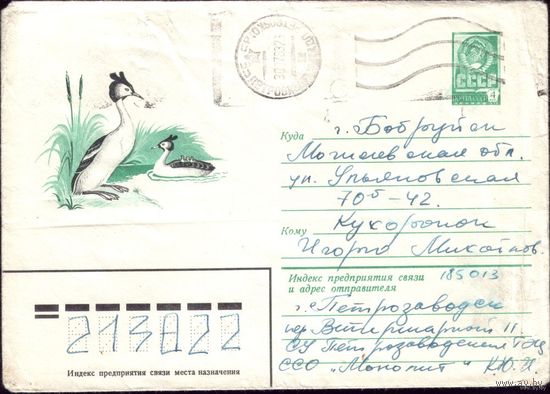 СССР
ПОЧТА
4
Куда г. Бобруйск
Могилевская обл.
ул. Ульяновская
70 - 42.
Кому
Игорю
Индекс предприятия связи
и адрес отправителя 185013
г. Петрозаводск
пер. Ветеринарный 11
СУ Петрозаводской
ССО "Монолит" К.Ю.И.
213822
Индекс предприятия связи места назначения
www.ay.by